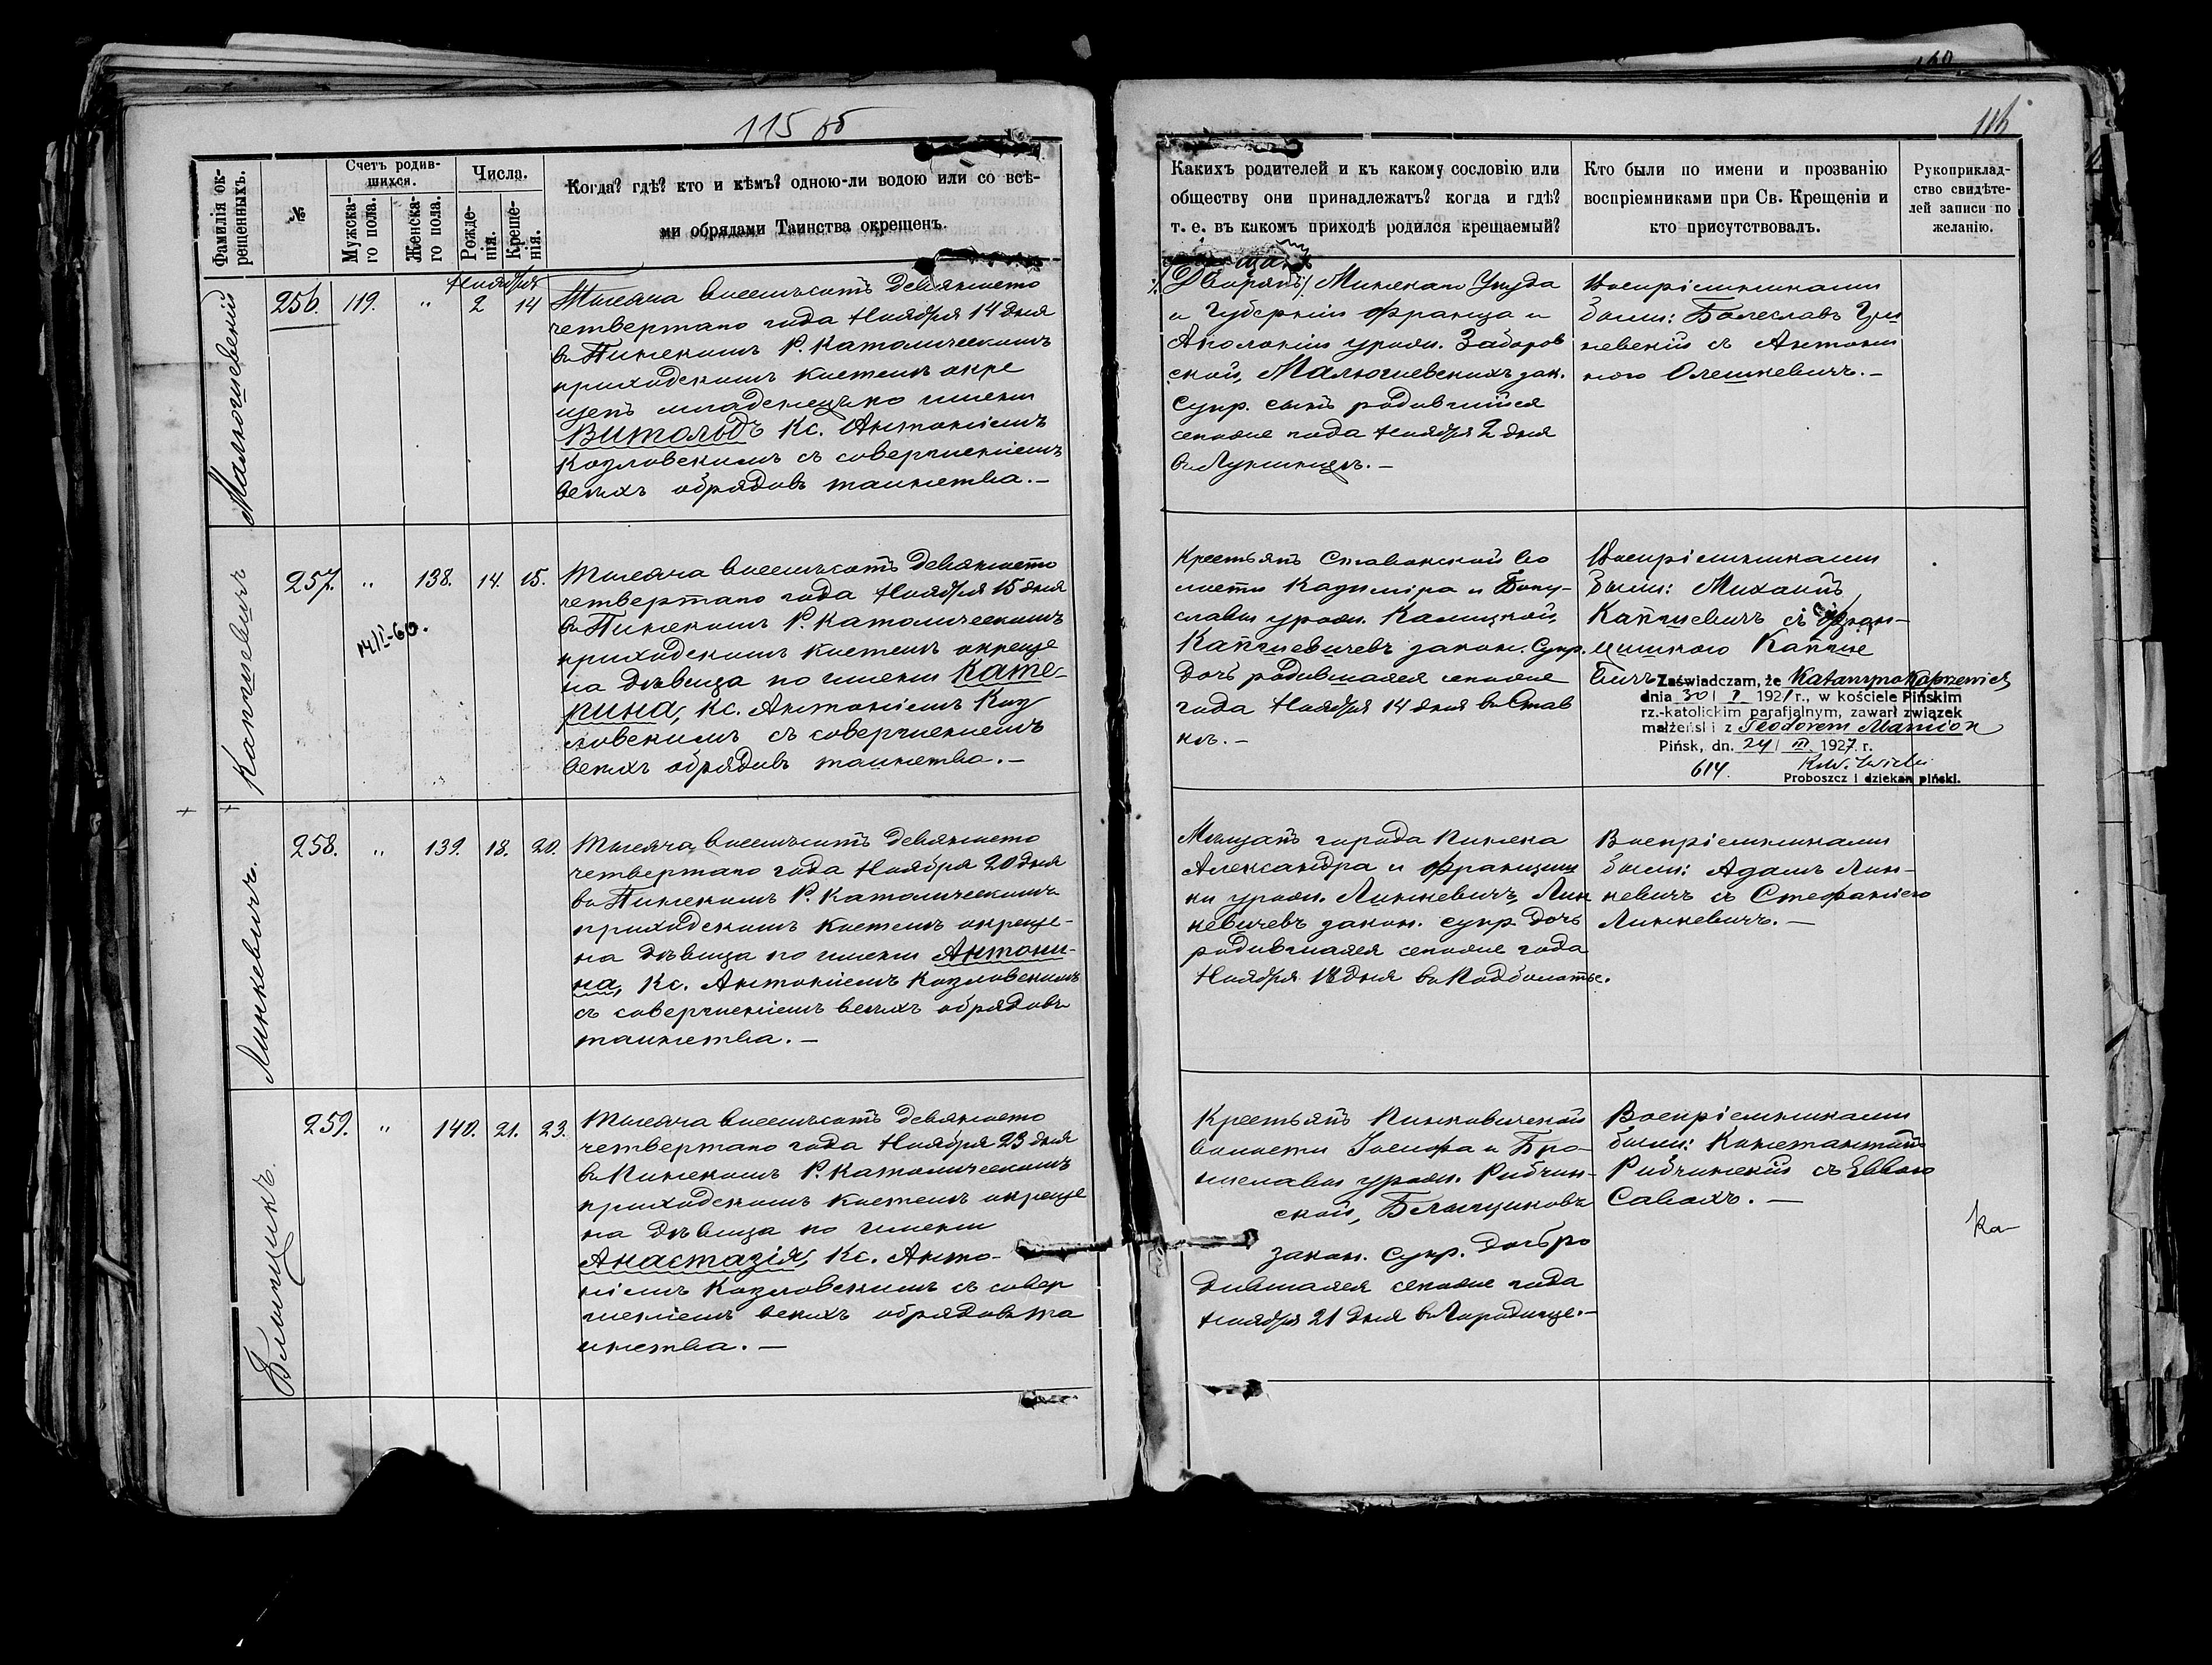 115 об
116
Фамилія ок-
рещенныхъ.
№
Счетъ родив-
шихся.
Мужска-
го пола.
Женска-
го пола.
Числа.
Рожде-
нія.
Креще-
нія.
Когда? гдѣ? кто и кѣмъ? одною-ли водою или со всѣ-
ми обрядами Таинства окрещенъ.
Какихъ родителей и къ какому сословію или
обществу они принадлежатъ? когда и гдѣ?
т. е. въ какомъ приходѣ родился крещаемый?
Кто были по имени и прозванію
воспріемниками при Св. Крещеніи и
кто присутствовалъ.
Рукоприклад-
ство свидѣте-
лей записи по
желанію.
Малюшевскій
256.
119.
"
Ноября
2
14
Тысяча восемьсотъ девяносто
четвертаго года Ноября 14 дня
въ Пинскомъ Р. Католическомъ
приходскомъ костелѣ окре
щенъ младенецъ по имени
Витольдъ Кс. Антоніемъ
Козловскимъ съ совершеніемъ
всѣхъ обрядовъ таинства.—
Дворянъ Минскаго Уѣзда
и Губерніи Франца и
Аполоніи урожд. Заборов
ской, Малюшевскихъ зак.
Супр. сынъ родившійся
сегоже года Ноября 2 дня
въ Лунинцѣ.—
Воспріемниками
были: Болеславъ
невскій съ Антони
ною Олешкевичъ.—
Капшевичъ
257.
"
138.
14.
15.
Тысяча восемьсотъ девяносто
четвертаго года Ноября 15 дня
въ Пинскомъ Р. Католическомъ
приходскомъ костелѣ окреще
на дѣвица по имени Кате-
рина, Кс. Антоніемъ Коз
ловскимъ съ совершеніемъ
всѣхъ обрядовъ таинства.—
Крестьянъ Ставокской во
лости Казиміра и Богу-
славы урожд. Калицкой,
Капшевичевъ закон. Супр.
дочь родившаяся сегоже
года Ноября 14 дня въ Став
кѣ.—
Воспріемниками
были: Михаилъ
Капшевичъ съ Фран-
цишкою Капше
вичъ
Zaświadczam, że Katarzyna Kapszewicz
dnia 30 / I 1921 r., w kościele Pińskim
rz.-katolickim parafjalnym, zawarł związek
małżeński z Teodorem
Pińsk, dn. 24 / III 1927 r.
614.
Proboszcz i dziekan piński.
Линкевичъ.
258.
"
139.
18.
20.
Тысяча восемьсотъ девяносто
четвертаго года Ноября 20 дня
въ Пинскомъ Р. Католическомъ
приходскомъ костелѣ окреще-
на дѣвица по имени Антони-
на, Кс. Антоніемъ Козловскимъ
съ совершеніемъ всѣхъ обрядовъ
таинства.—
Мѣщанъ города Пинска
Александра и Францишк
ки урожд. Линкевичъ, Лин
кевичевъ закон. супр. дочь
родившаяся сегоже года
Ноября 18 дня въ Подболотье.
Воспріемниками
были: Адамъ Лин-
кевичъ съ Стефаніею
Линкевичъ.—
259.
"
140.
21.
23.
Тысяча восемьсотъ девяносто
четвертаго года Ноября 23 дня
въ Пинскомъ Р. Католическомъ
приходскомъ костелѣ окреще
на дѣвица по имени
Анастазія, Кс. Анто-
ніемъ Козловскимъ съ совер
шеніемъ всѣхъ обрядовъ та
инства.—
Крестьянъ Пинковичской
волости Іосифа и Бро-
ниславы урожд. Рибчин-
ской,
закон. Супр. дочь ро
дившаяся сегоже года
Ноября 21 дня въ Городище.—
Воспріемниками
были: Константинъ
Рибчинскій съ Еввою
Савахъ.—